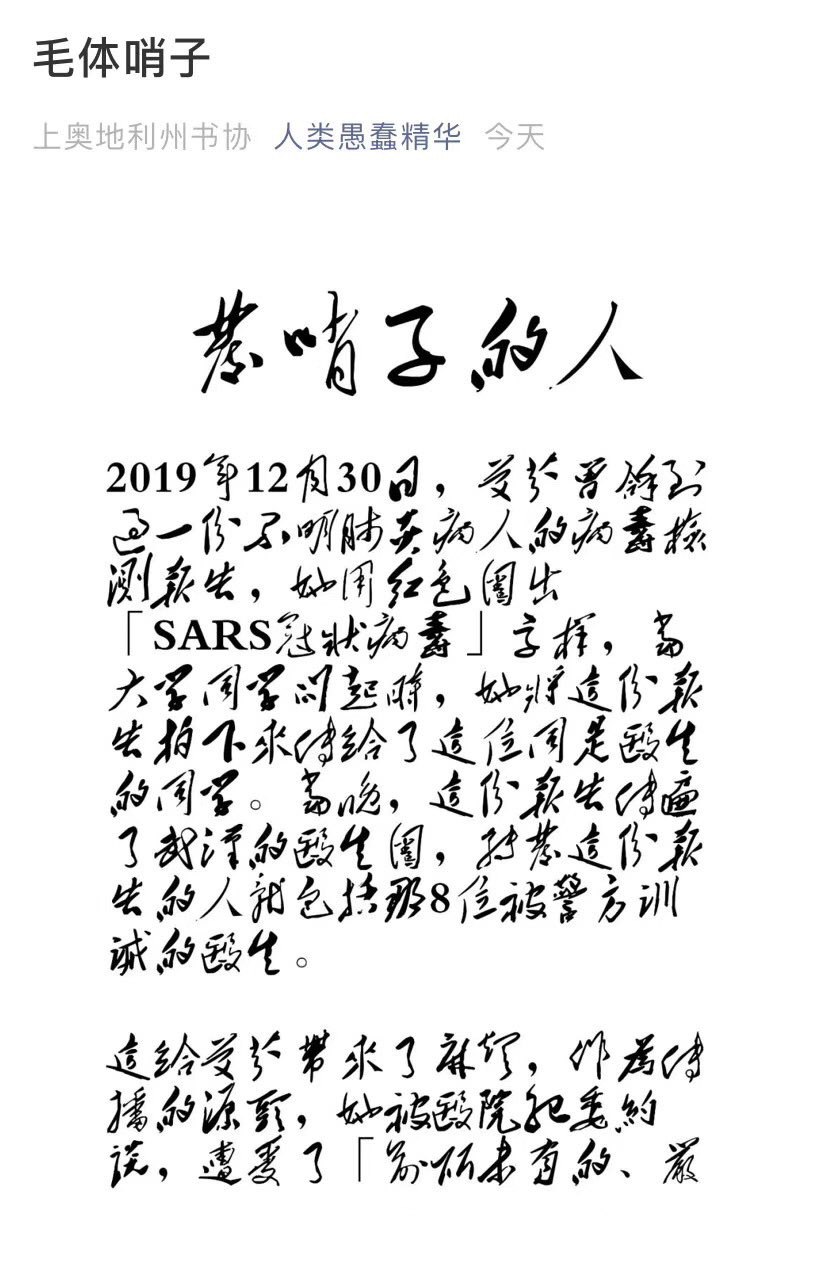 毛体哨子
上奥地利州书协 人类愚蠢精华 今天
發哨子的人
2019年12月30日，艾芬曾收到
過一份不明肺炎病人的病毒檢
測報告，她用紅色圈出
「SARS冠狀病毒」字樣，當
大學同學問起時，她將這份報
告拍下來傳給了這位同是醫生
的同學。當晚，這份報告傳遍
了武漢的醫生圈，轉發這份報
告的人就包括那8位被警方訓
誡的醫生。
這給艾芬帶來了麻煩，作為傳
播的源頭，她被醫院紀委約
談，遭受了「前所未有的、嚴